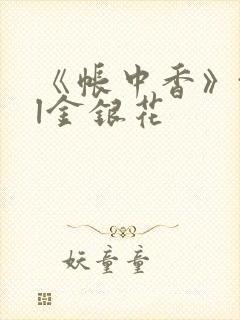 《帐中香》
|金银花
妖童童